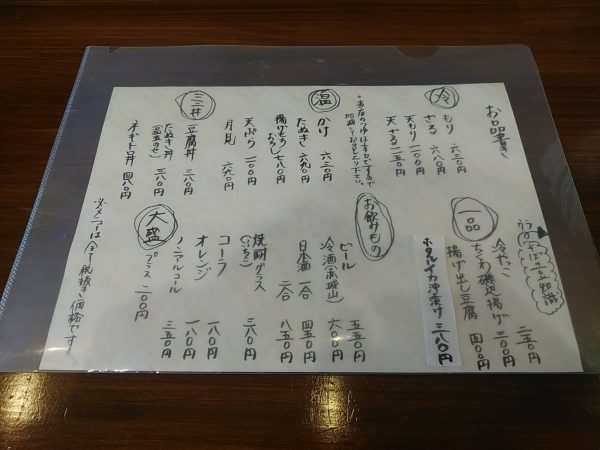 お品書き
冷
もり 六三〇円
ざる 六八〇円
天もり 一一〇〇円
天ざる 一一五〇円
温
・当店のつゆは辛口ですので
加減してお召し上り下さい。
かけ 六三〇円
たぬき 六九〇円
揚げもち 七八〇円
おろし
天ぷら 一一〇〇円
月見 六九〇円
ミニ丼
豆腐丼 三八〇円
たぬき丼 三八〇円
ネギトロ丼 四八〇円
一品
冷やっこ 二五〇円
ちくわ磯辺揚げ 三〇〇円
揚げ出し豆腐 四〇〇円
ホタルイカ沖漬け 三八〇円
お飲みもの
ビール 五五〇円
冷酒(赤城山) 六〇〇円
日本酒 一合 四五〇円
二合 八五〇円
焼酎グラス 三八〇円
(いいちこ)
コーラ 一八〇円
オレンジ 一八〇円
ノンアルコール 三五〇円
大盛
プラス 二〇〇円
※メニューは全て税抜き価格です